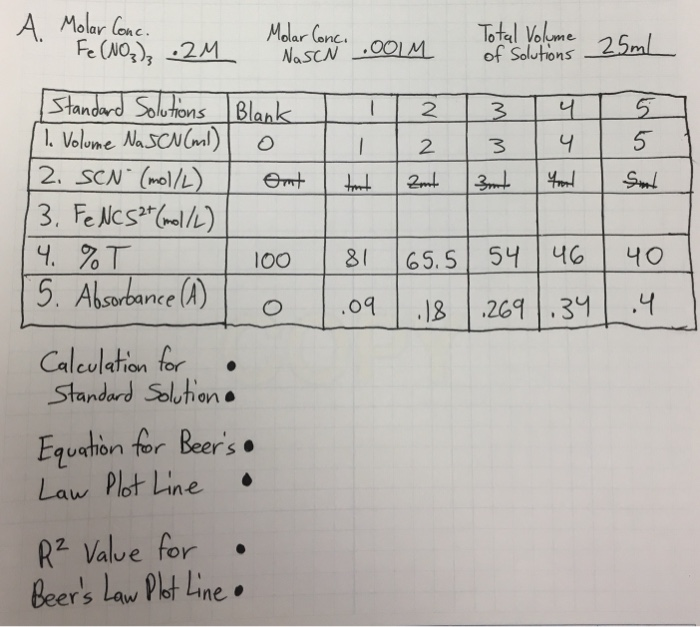 A. Molar Conc. Fe(NO3)3 .2M Molar Conc. NaSCN .001M Total Volume of Solutions 25ml
Standard Solutions Blank 1 2 3 4 5
1. Volume NaSCN(ml) 0 1 2 3 4 5
2. SCN- (mol/L) 0ml 1ml 2ml 3ml 4ml 5ml
3. FeNCS2+(mol/L)
4. %T 100 81 65.5 54 46 40
5. Absorbance (A) 0 .09 .18 .269 .34 .4
Calculation for •
Standard Solution •
Equation for Beer's •
Law Plot Line •
R2 Value for •
Beer's Law Plot Line •